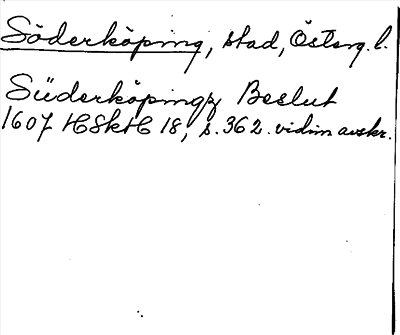 Söderköping, stad, Österg. l.
Süderköpings Beslut
1607 HSkH 18, s. 362. vidim avskr.